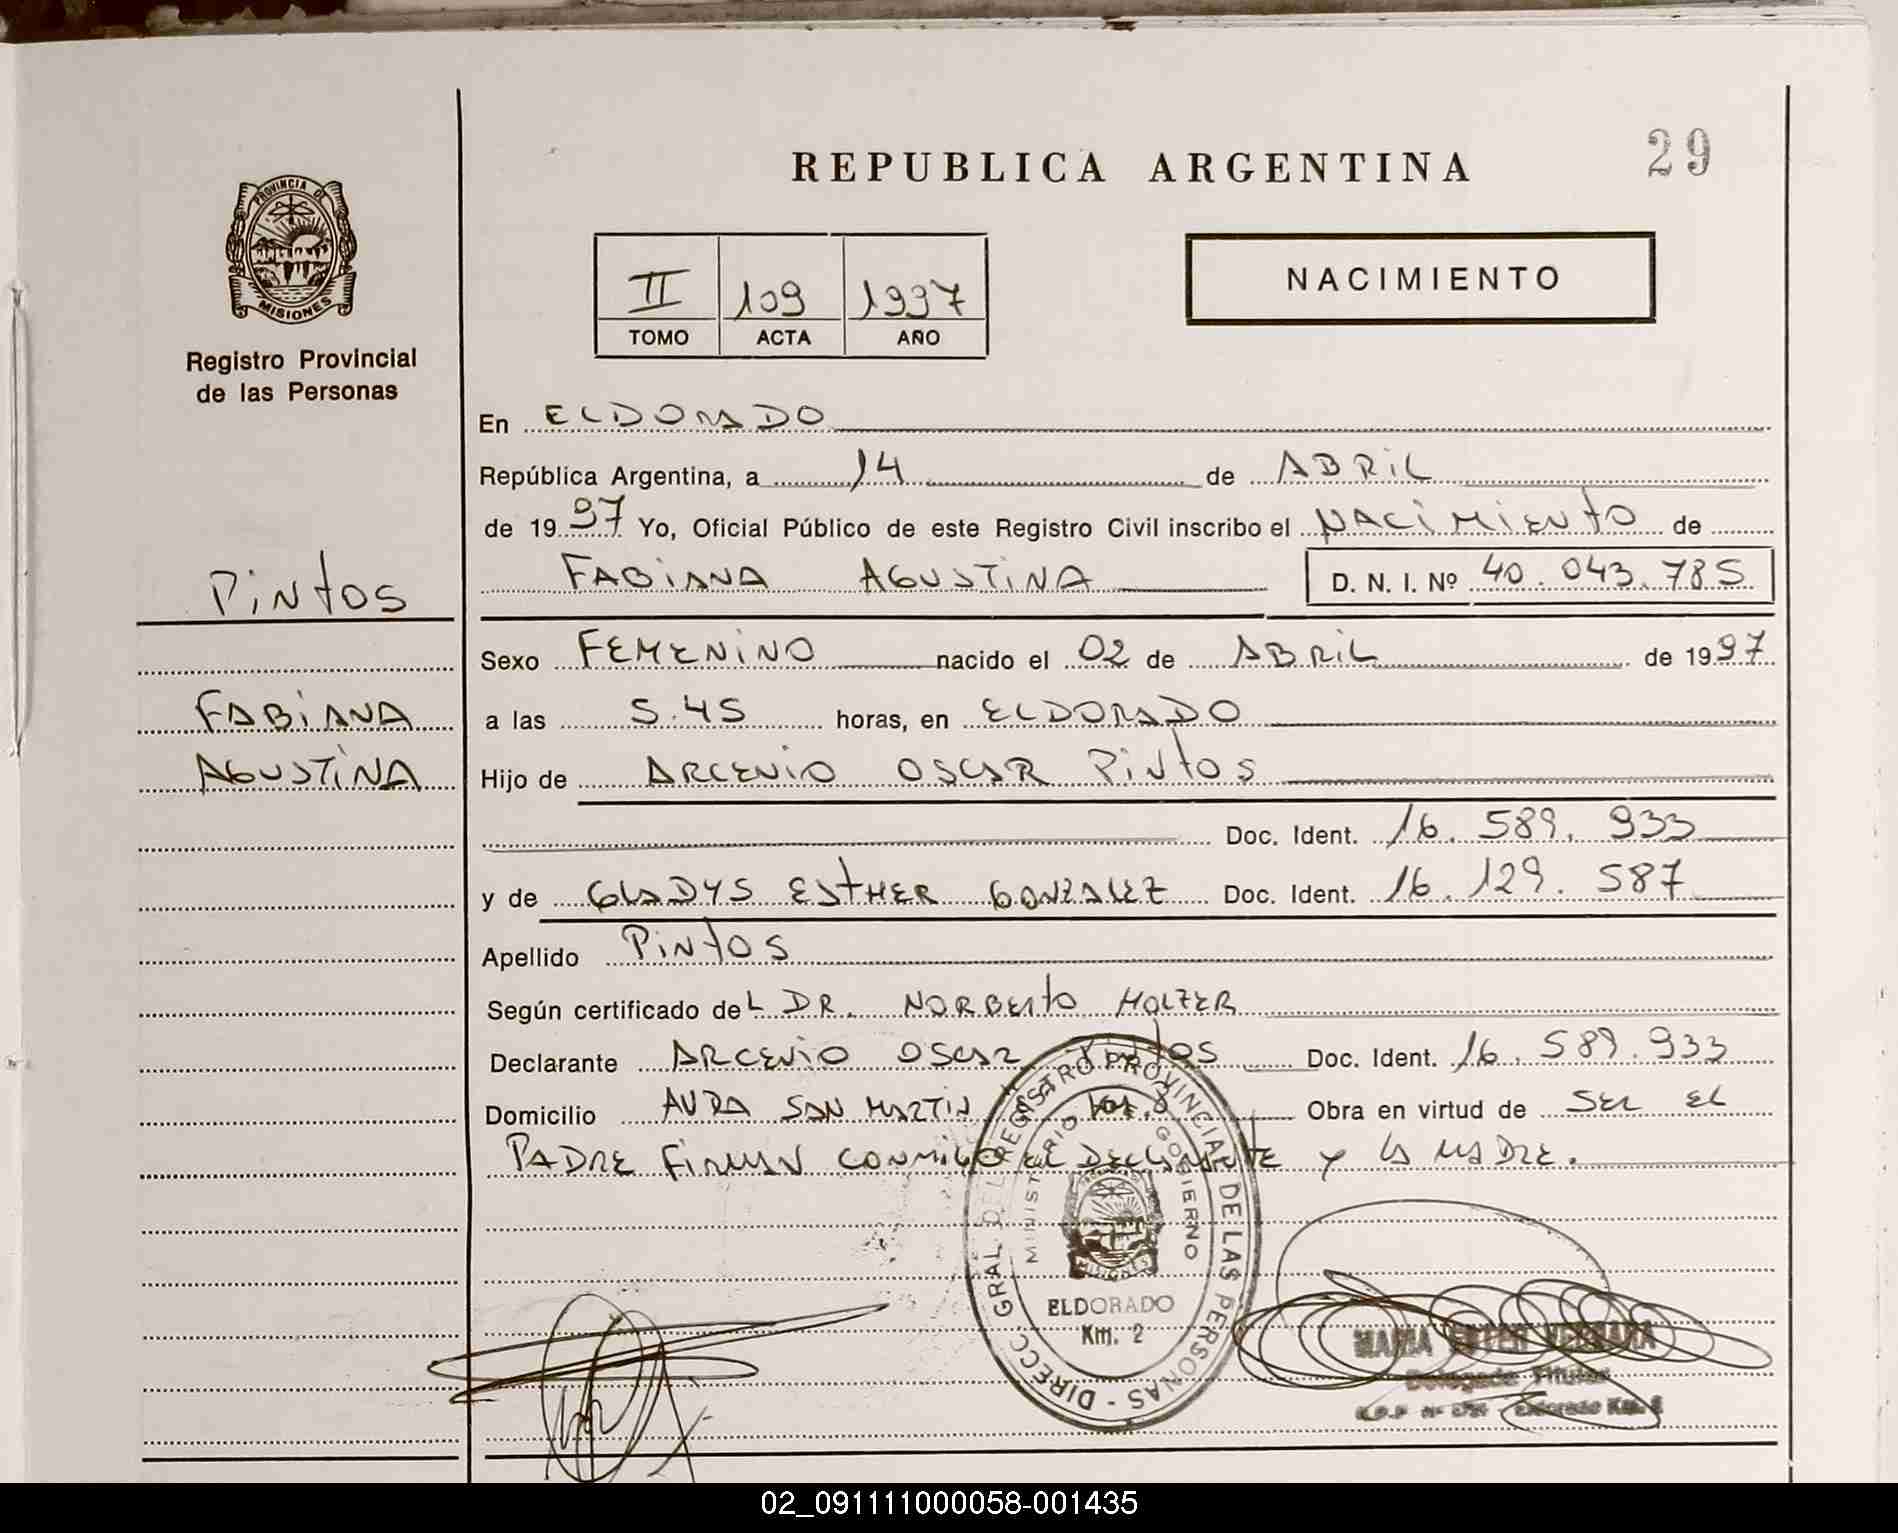 REPUBLICA ARGENTINA
29
PROVINCIA DE
MISIONES
Registro Provincial
de las Personas
II 109 1997
TOMO ACTA AÑO
NACIMIENTO
En ELDORADO
República Argentina, a 14 de ABRIL
de 1997 Yo, Oficial Público de este Registro Civil inscribo el NACIMIENTO de
FABIANA AGUSTINA D. N. I. Nº 40.043.785
PINTOS
Sexo FEMENINO nacido el 02 de ABRIL de 1997
FABIANA
a las 5.45 horas, en ELDORADO
AGUSTINA
Hijo de ARCENIO OSCAR PINTOS
Doc. Ident. 16.589.933
y de GLADYS ESTHER GONZALEZ Doc. Ident. 16.129.587
Apellido PINTOS
Según certificado deL DR. NORBERTO HOLZER
Declarante ARCENIO OSCAR PINTOS Doc. Ident. 16.589.933
Domicilio AVDA SAN MARTIN KM. 8 Obra en virtud de SER EL
PADRE FIRMAN CONMIGO EL DECLARANTE Y LA MADRE.
DIRECC. GRAL. DEL REGISTRO PROVINCIAL DE LAS PERSONAS -
MINISTERIO GOBIERNO
MISIONES
ELDORADO
Km. 2
MARIA
Delegada Titular
Eldorado Km. 2
02_091111000058-001435